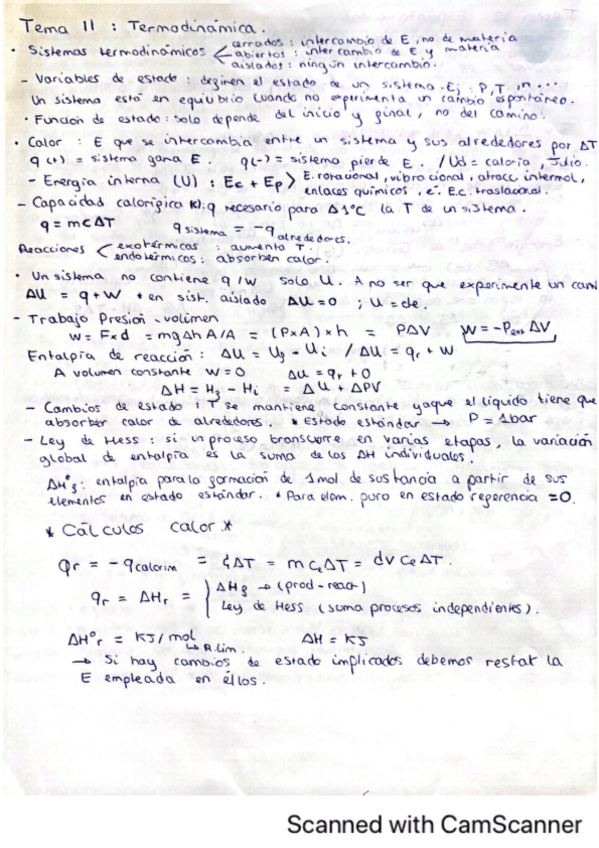 Tema 11 : Termodinámica.
• Sistemas termodinámicos < cerrados : intercambio de E, no de materia
abiertos : intercambio de E y materia
aislados : ningún intercambio.
- Variables de estado : definen el estado de un sistema. Ej : P, T, n ...
Un sistema está en equilibrio cuando no experimenta un cambio espontáneo.
• Función de estado : solo depende del inicio y final, no del camino.
• Calor : E que se intercambia entre un sistema y sus alrededores por ΔT
q (+) = sistema gana E. q(-) = sistema pierde E. / Ud = caloría, Julio.
- Energía interna (U) : Ec + Ep > E. rotacional, vibracional, atracc intermol,
enlaces químicos, e⁻. E.c. traslacional.
- Capacidad calorífica (K): q necesario para Δ1°C la T de un sistema.
q = mcΔT q sistema = -q alrededores.
Reacciones < exotérmicas : aumento T.
endotérmicas : absorben calor.
• Un sistema no contiene q/w solo U. A no ser que experimente un cam
ΔU = q + w • en sist. aislado ΔU = 0 ; U = cte.
- Trabajo Presión-volumen
w = F×d = mgΔh A/A = (P×A)×h = PΔV w = -Pext ΔV
Entalpía de reacción : ΔU = Uf - Ui / ΔU = qr + w
A volumen constante w = 0 ΔU = qr + 0
ΔH = Hf - Hi = ΔU + ΔPV
- Cambios de estado : T se mantiene constante ya que el líquido tiene que
absorber calor de alrededores. * Estado estándar → P = 1bar
- Ley de Hess : si un proceso transcurre en varias etapas, la variación
global de entalpía es la suma de los ΔH individuales.
ΔH°f : entalpía para la formación de 1 mol de sustancia a partir de sus
elementos en estado estándar. * Para elem. puro en estado referencia = 0.
* Cálculos calor. *
qr = -qcalorim = CΔT = m CeΔT = dV CeΔT.
qr = ΔHr = ΔHf → (prod - react)
Ley de Hess (suma procesos independientes).
ΔH°r = KJ/mol ΔH = KJ
↳ R. lim.
→ Si hay cambios de estado implicados debemos restar la
E empleada en éllos.
Scanned with CamScanner